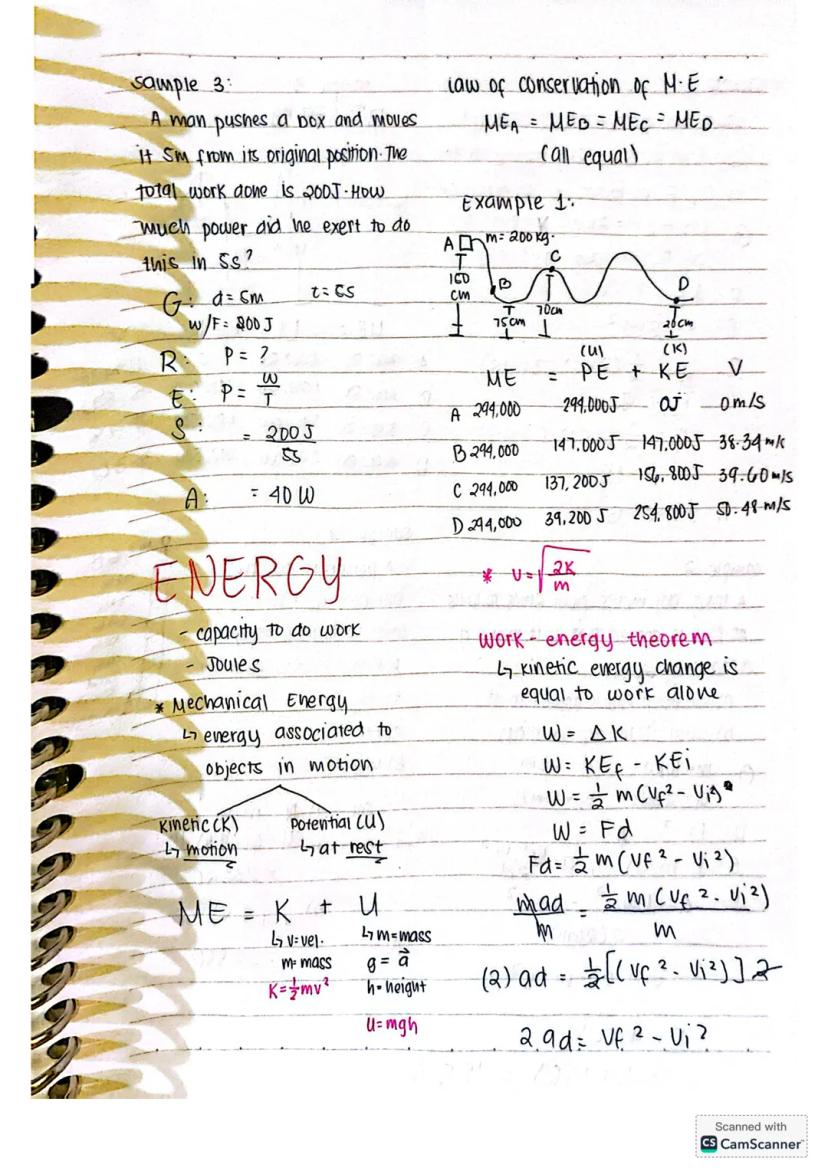 Sample 3:
A man pushes a box and moves
it 5m from its original position. The
total work done is 200J. How
much power did he exert to do
this in 5s?
G: d = 5m t = 5s
W/F = 200 J
R: P = ?
E: P = W/T
S: = 200 J / 5s
A: = 40 W
ENERGY
- capacity to do work
- Joules
* Mechanical Energy
↳ energy associated to
objects in motion
Kinetic (K) Potential (U)
↳ motion ↳ at rest
ME = K + U
↳ v = vel. ↳ m = mass
m = mass g = a⃗
K = ½mv² h = height
U = mgh
Law of Conservation of M.E.
MEA = MEB = MEC = MED
(all equal)
Example 1:
A m = 200 kg.
C
B
D
150
cm
75cm
70cm
20cm
(U) (K)
ME = PE + KE V
A 294,000 294,000J 0J 0 m/s
B 294,000 147,000J 147,000J 38.34 m/s
C 294,000 137,200J 156,800J 39.60 m/s
D 294,000 39,200 J 254,800J 50.48 m/s
* v = √2K/m
Work - energy theorem
↳ kinetic energy change is
equal to work alone
W = ΔK
W = KEf - KEi
W = ½ m(Vf² - Vi)²
W = Fd
Fd = ½ m (Vf² - Vi²)
mad/m = ½ m (Vf² - Vi²)/m
(2) ad = ½ [(Vf² - Vi²)] 2
2ad = Vf² - Vi²
Scanned with
CS CamScanner